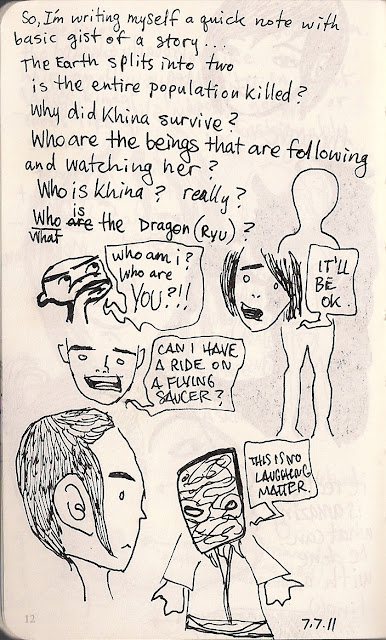 So, I'm writing myself a quick note with
basic gist of a story...
The Earth splits into two
is the entire population killed?
Why did Khina survive?
Who are the beings that are following
and watching her?
Who is Khina? really?
Who is are the Dragon (Ryu)?
What
Who am i?
Who are
YOU?!!
IT'LL
BE
OK.
CAN I HAVE
A RIDE ON
A FLYING
SAUCER?
THIS IS NO
LAUGHING
MATTER.
12
7.7.11